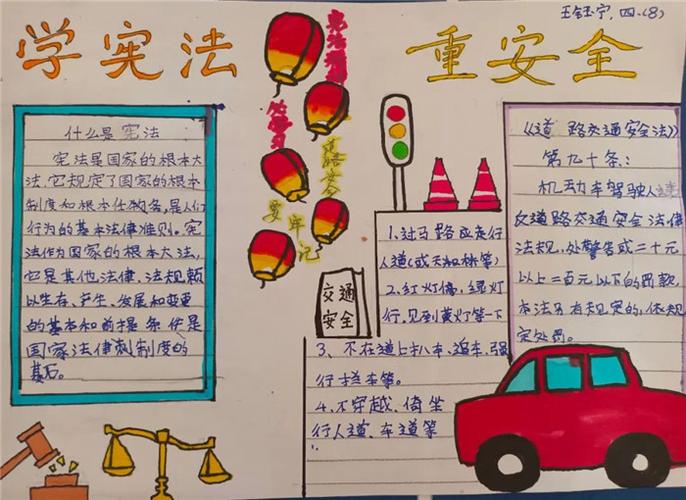 学宪法
重安全
四.(8)
什么是宪法
宪法是国家的根本大
法.它规定了国家的根本
制度和根本任务,是人们
行为的基本法律准则。宪
法作为国家的根本大法,
它是其他法律、法规赖
以生存、产生、发展和变更
的基本和前提条件是
国家法律制制度的
基石。
要牢记
交通
安全
1.过马路应走行
人道(或天和桥等)
2.红灯停,绿灯
行,见到黄灯等一下
3、不在道上扒车、追车、强
行拦车等。
4.不穿越、倚坐
行人道、车道等
《道路交通安全法》
第九十条:
机动车驾驶人违
反道路交通安全法律
法规,处警告或二十元
以上二百元以下的罚款,
本法另有规定的,依规
定处罚。